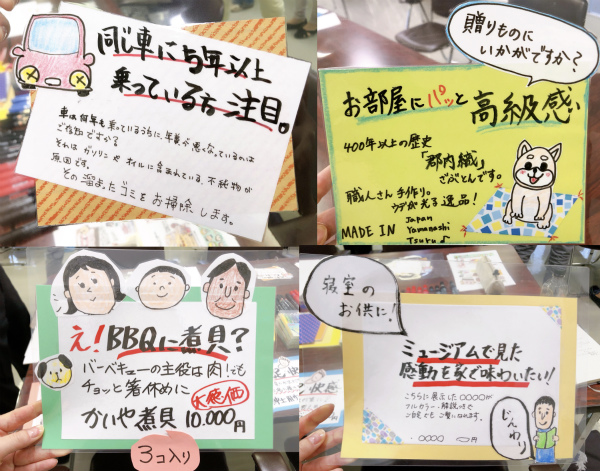 同じ車に5年以上
乗っている方 注目。
車は何年も乗っているうちに、年費が悪くなっているのは
ご存知ですか?
それは ガソリンや オイルに含まれている、不純物が
原因です。
その溜まったゴミをお掃除します。
贈りものに
いかがですか?
お部屋にパッと高級感
400年以上の歴史
「郡内織」
ざぶとんです。
職人さん手作り。
ウデが光る逸品!
MADE IN Japan
Yamanashi
Tsuru♪
え!BBQに煮貝?
バーベキューの主役は肉!でも
チョッと箸休めに
大感謝価
かいや煮貝 10.000円
3コ入り
寝室の
お供に!
ミュージアムで見た
感動を家で味わいたい!
こちらに展示した○○○○が
フルカラー・解説付で
ご自宅でも ご覧になれます。
・○○○○ ○円
じんわり